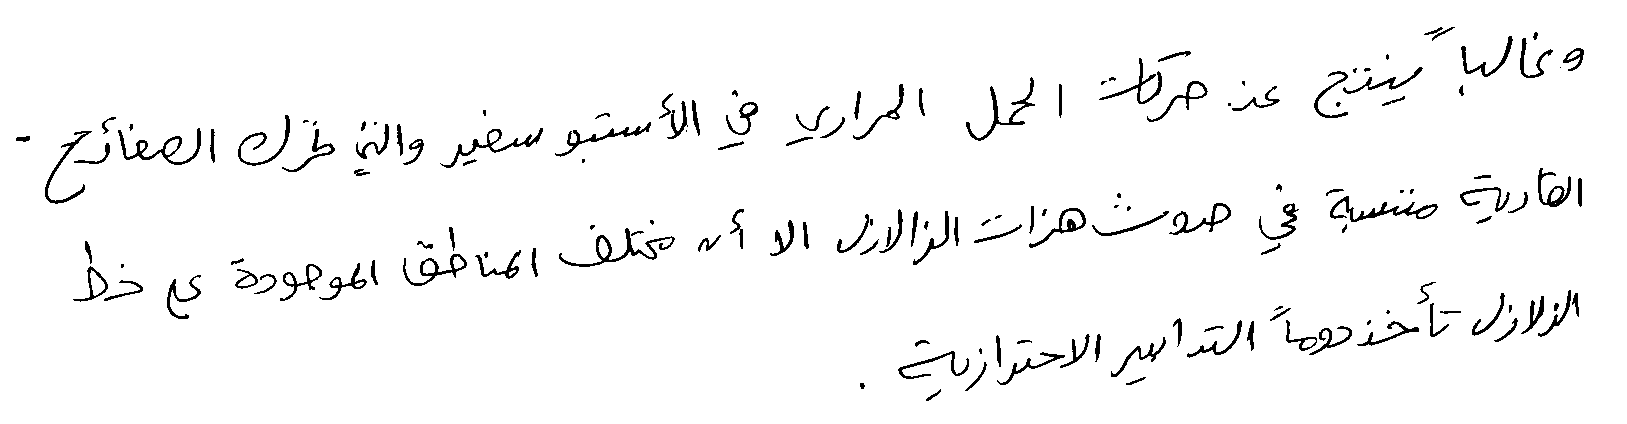 وغالباً ينتج عن حركات الحمل الحراري في الأستبوسفير والتي تحرك الصفائح -
القارية متسببة في حدوث هزات الزالازل الا أن مختلف المناطق الموجودة على خط
الزلازل تأخذ دوماً التدابير الاحترازية .